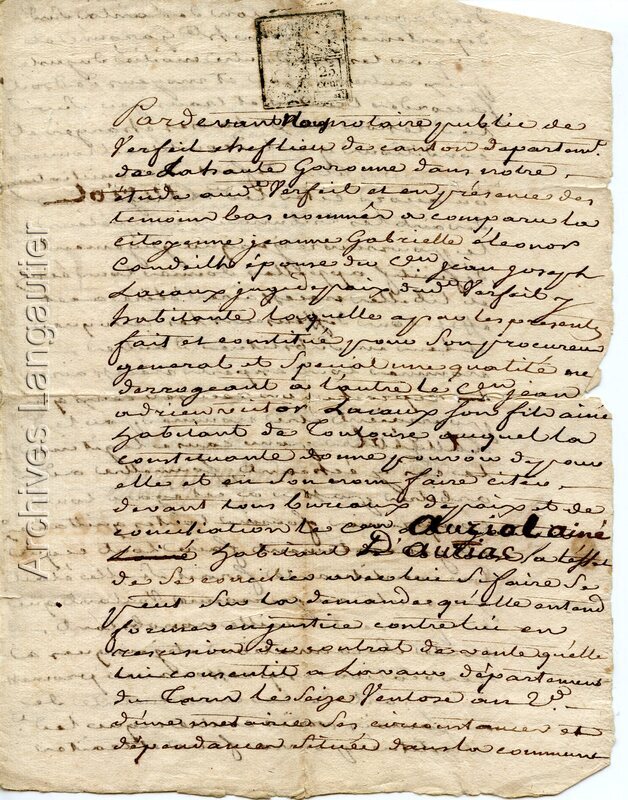 25
Pardevant Nous notaire public de
Verfeil cheflieu de canton departem.t
de La haute Garonne dans notre
étude aud.t Verfeil et en présence des
temoins bas nommés a comparu la
citoyenne jeanne Gabrielle éleonor
Candeilh épouse du c.en jean joseph
Lacaux juge de paix dud.t Verfeil y
habitante Laquelle a par les presentes
fait et constitué pour son procureur
general et special une qualité ne
derrogeant a l'autre le c.en jean
adrien victor Lacaux son fils ainé
habitant de Toulouse auquel la
constituante donne pouvoir de pour
elle et en son nom faire citer
devant tous bureaux de paix et de
conciliation le c.en Auriol ainé
habitant D'auriac a l'effet
de se concilier avec lui si faire se
peut sur la demande qu'elle entend
former en justice contre lui en
rescision du contrat de vente qu'elle
lui consentit a Lavaur département
du Tarn le seize Ventose an 2.d
d'une metairie ses circonstances et
dépendances située dans la commune
Archives Langautier